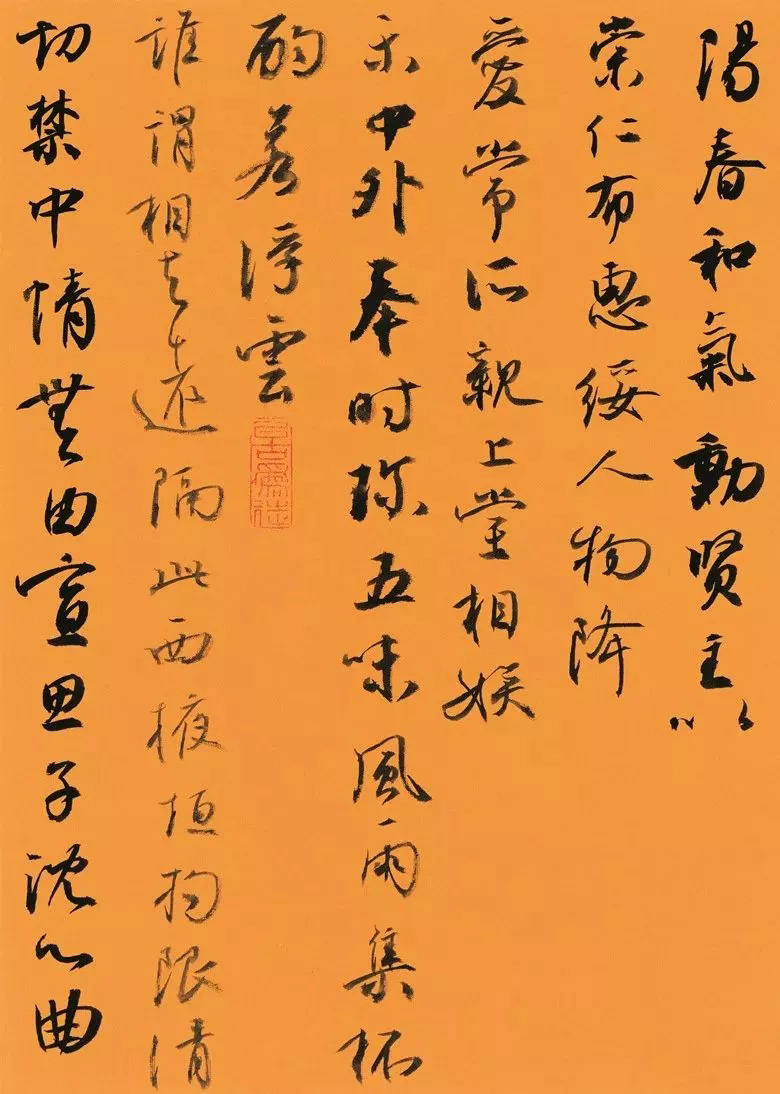 陽春和氣動賢主以
崇仁布惠綏人物降
愛常所親上堂相娛
樂中外奉时珍五味風雨集杯
酌若浮雲
誰謂相去遠隔此西掖垣拘限清
切禁中情無由宣思子沈心曲